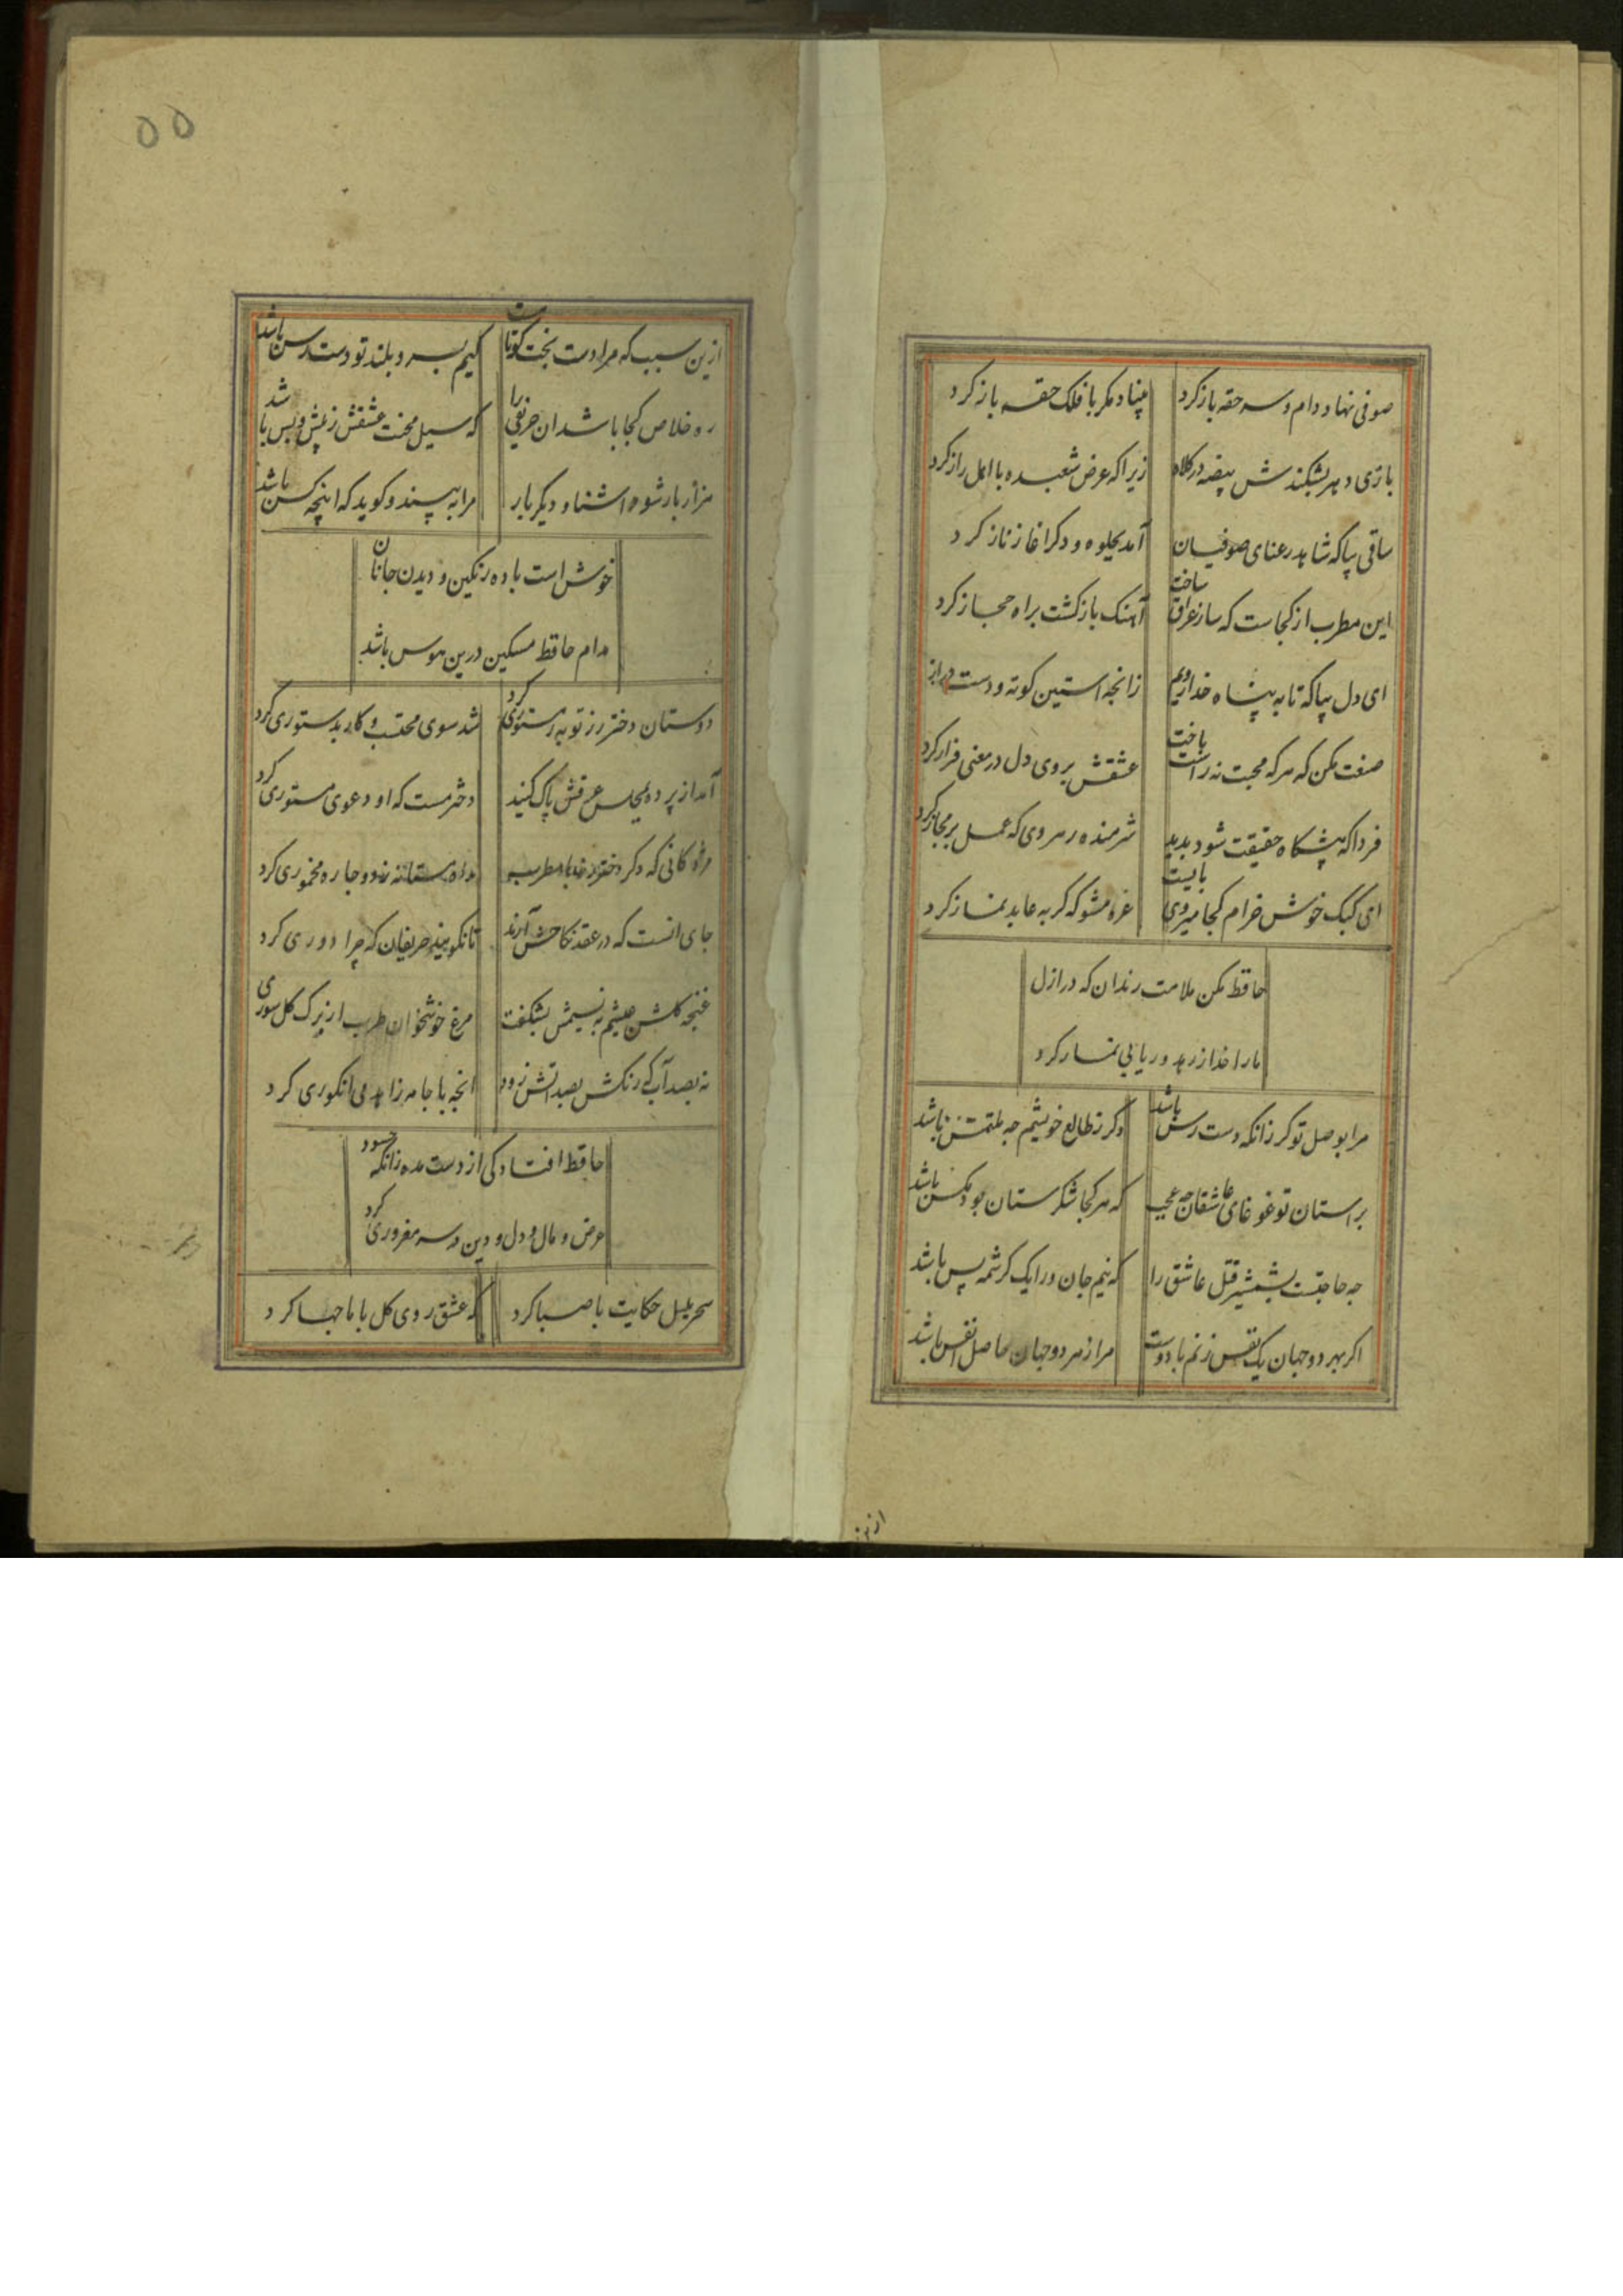 صوفی نهاد دام و سر حقه باز کرد
بنیاد مکر با فلک حقه باز کرد
بازی دهر بشکندش بیضه در کلاه
زیرا که عرض شعبده با اهل راز کرد
ساقی بیا که شاهد رعنای صوفیان
آمد بجلوه و دکر اغاز ناز کرد
این مطرب از کجاست که ساز عراق ساخت
آهنک بازکشت براه حجاز کرد
ای دل بیا که تا به پناه خدا رویم
زانجه استین کوته و دست دراز
صنعت مکن که هرکه محبت نه راست باخت
عشقش بروی دل در معنی فراز کرد
فردا که پیشکاه حقیقت شود بدید
شرمنده رهروی که عمل بر مجاز کرد
ای کبک خوش خرام کجا میروی بایست
غره مشو که کربه عابد نماز کرد
حافظ مکن ملامت رندان که در ازل
ما را خدا ز زهد و ریا بی نماز کرد
مرا بوصل تو کر زانکه دست رس باشد
دکر ز طالع خویشم جه ملتمس باشد
بر استان تو غوغای عاشقان جه عجب
که هر کجا شکرستان بود مکس باشد
جه حاجتست بشمشیر قتل عاشق را
که نیم جان ورا یک کرشمه بس باشد
اکر بهر دو جهان یک نفس زنم با دوست
مرا ز هر دو جهان حاصل انفس باشد
ازین
۵۵
ازین سبب که مرا دست بخت کوتاست
کیم بسرو بلند تو دست رس باشد
ره خلاص کجا باشد ان غریقی را
که سیل محنت عشقش ز پیش و پس باشد
هزار بار شود اشنا و دیکر بار
مرا به بیند و کوید که اینجه کس باشد
خوش است باده رنکین و دیدن جانان
مدام حافظ مسکین درین هوس باشد
دوستان دختر رز توبه ز مستوری کرد
شد سوی محتسب و کار بدستوری کرد
آمد از پرده بمجلس عرقش پاک کنید
دختر مست که او دعوی مستوری کرد
مژدکانی که دکر دختر
راه مستانه زد و چاره مخموری کرد
جای انست که در عقد نکاحش آرند
تا نکویند حریفان که چرا دوری کرد
غنجه کلشن عیشم به نسیمش بشکفت
مرغ خوشخوان طرب از برک کل سوری
نه بصد آب که رنکش بصد اتش نرود
انجه با جامه زاهد می انکوری کرد
حافظ افتادکی از دست مده زانکه حسود
عرض و مال و دل و دین در سر مغروری کرد
سحر بلبل حکایت با صبا کرد
که عشق روی کل با ما جها کرد